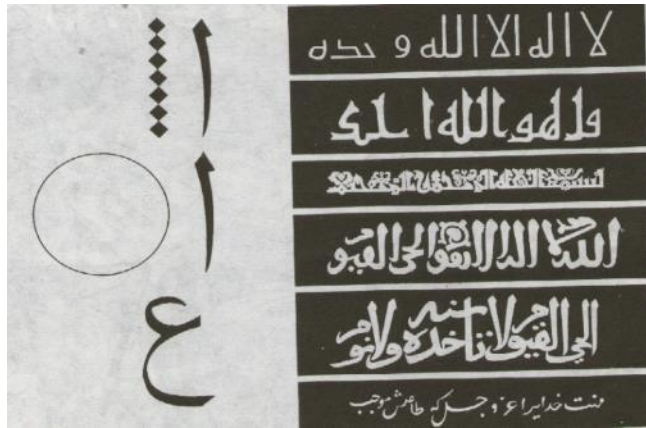 لا اله الا الله وحده
قل هو الله احد
بسم الله الرحمن الرحيم
الله لا اله الا هو الحي القيوم
الحي القيوم لا تاخذه سنه ولا نوم
منت خدایرا عز و جل که طاعتش موجب
ا
ا
ع